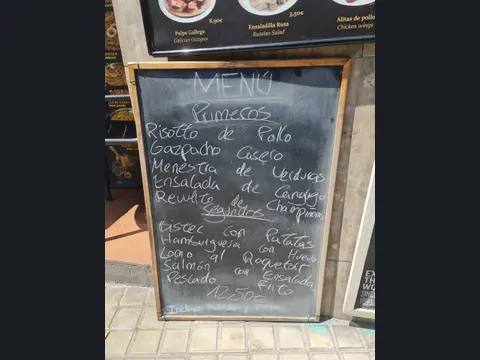 8.90€
Pulpo Gallego
Galician Octopus
3.50€
Ensaladilla Rusa
Russian Salad
Alitas de pollo
Chicken wings
MENÚ
Primeros
Risotto de Pollo
Gazpacho Casero
Menestra de Verduras
Ensalada de Canónigo
Revuelto de Champiñones
Segundos
Bistec con Patatas
Hamburguesa con Huevo
Lomo al Roquefort
Salmón con Ensalada
Pescado Frito
12.50